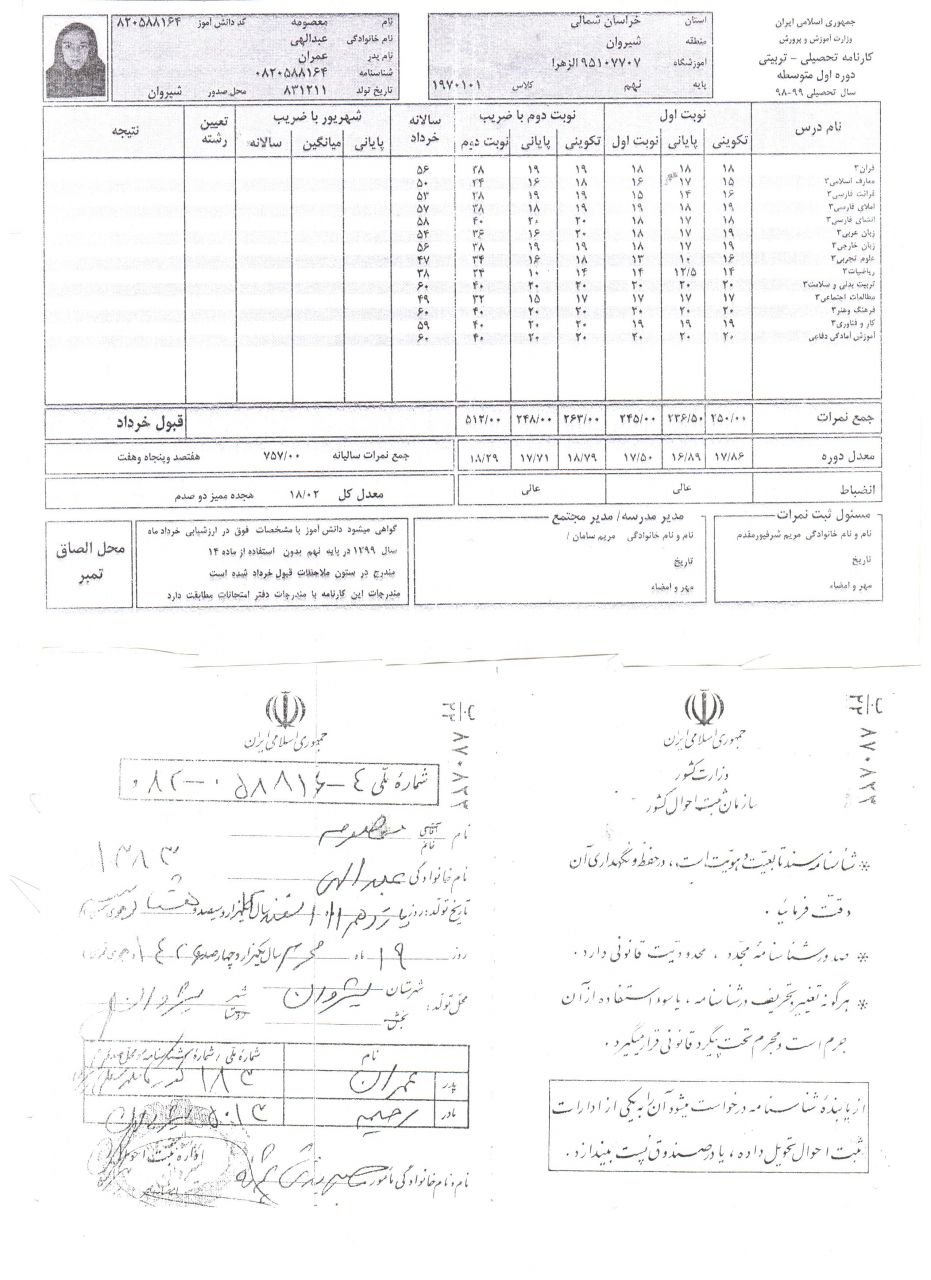 جمهوری اسلامی ایران
وزارت آموزش و پرورش
کارنامه تحصیلی - تربیتی
دوره اول متوسطه
سال تحصیلی ۹۹-۹۸
استان خراسان شمالی
منطقه شیروان
آموزشگاه ۹۵۱۰۷۷۰۷ الزهرا
پایه نهم کلاس ۱۹۷۰۱۰۱
نام معصومه کد دانش آموز ۸۲۰۵۸۸۱۶۴
نام خانوادگی عبدالهی
نام پدر عمران
شناسنامه ۰۸۲۰۵۸۸۱۶۴
تاریخ تولد ۸۳۱۲۱۱ محل صدور شیروان
نام درس نوبت اول نوبت دوم با ضریب سالانه خرداد شهریور با ضریب تعیین رشته نتیجه
تکوینی پایانی نوبت اول تکوینی پایانی نوبت دوم پایانی میانگین سالانه
قرآن۳ ۱۸ ۱۸ ۱۸ ۱۹ ۱۹ ۳۸ ۵۶
معارف اسلامی۳ ۱۵ ۱۷ ۱۶ ۱۸ ۱۶ ۳۴ ۵۰
قرائت فارسی۳ ۱۶ ۱۴ ۱۵ ۱۹ ۱۹ ۳۸ ۵۳
املای فارسی۳ ۱۹ ۱۸ ۱۹ ۱۹ ۱۸ ۳۸ ۵۷
انشای فارسی۳ ۱۸ ۱۷ ۱۸ ۲۰ ۲۰ ۴۰ ۵۸
زبان عربی۳ ۱۹ ۱۷ ۱۸ ۲۰ ۱۶ ۳۶ ۵۴
زبان خارجی۳ ۱۹ ۱۷ ۱۸ ۱۹ ۱۹ ۳۸ ۵۶
علوم تجربی۳ ۱۳ ۱۸ ۱۶ ۳۴ ۴۷
ریاضیات۳ ۱۴ ۱۲/۵ ۱۴ ۱۴ ۱۰ ۲۴ ۳۸
تربیت بدنی و سلامت۳ ۲۰ ۲۰ ۲۰ ۲۰ ۲۰ ۴۰ ۶۰
مطالعات اجتماعی۳ ۱۷ ۱۷ ۱۷ ۱۷ ۱۵ ۳۲ ۴۹
فرهنگ وهنر۳ ۲۰ ۲۰ ۲۰ ۲۰ ۲۰
کار و فناوری۳ ۱۹ ۱۹ ۱۹ ۲۰ ۲۰ ۴۰ ۵۹
آموزش آمادگی دفاعی ۲۰ ۲۰ ۲۰ ۲۰ ۲۰ ۴۰ ۶۰
جمع نمرات ۲۵۰/۰۰ ۲۳۶/۵۰ ۲۴۵/۰۰ ۲۶۳/۰۰ ۲۴۸/۰۰ ۵۱۲/۰۰ قبول خرداد
معدل دوره ۱۷/۸۶ ۱۶/۸۹ ۱۷/۵۰ ۱۸/۷۹ ۱۷/۷۱ ۱۸/۲۹ جمع نمرات سالیانه ۷۵۷/۰۰ هفتصد وپنجاه وهفت
انضباط عالی عالی معدل کل ۱۸/۰۲ هجده ممیز دو صدم
مسئول ثبت نمرات
نام و نام خانوادگی مریم شرفپورمقدم
تاریخ
مهر و امضاء
مدیر مدرسه/ مدیر مجتمع
نام و نام خانوادگی مریم سامان /
تاریخ
مهر و امضاء
گواهی میشود دانش آموز با مشخصات فوق در ارزشیابی خرداد ماه
سال ۱۳۹۹ در پایه نهم بدون استفاده از ماده ۱۴
مندرج در ستون ملاحظات قبول خرداد شده است
مندرجات این کارنامه با مندرجات دفتر امتحانات مطابقت دارد
محل الصاق
تمبر
جمهوری اسلامی ایران
وزارت کشور
سازمان ثبت احوال کشور
۸۷۰۸۲۴
* شناسنامه سند تابعیت و هویت است، در حفظ و نگهداری آن
دقت فرمائید.
* صدور شناسنامهٔ مجدد، محدودیت قانونی دارد.
* هرگونه تغییر و تحریف در شناسنامه، یا سوء استفاده از آن
جرم است و مجرم تحت پیگرد قانونی قرار میگیرد.
از یابندهٔ شناسنامه درخواست میشود آن را به یکی از ادارات
ثبت احوال تحویل داده، یا در صندوق پست بیندازد.
جمهوری اسلامی ایران
۸۷۰۸۲۴
شمارهٔ ملی ۴-۰۵۸۸۱۶-۰۸۲
نام آقای خانم معصومه
نام خانوادگی عبدالهی
۱۳۸۳
تاریخ تولد: روز یازدهم ۱۱ ماه اسفند سال یکهزار و سیصد و هشتاد
روز ۱۹ ماه محرم سال یکهزار و چهارصد
محل تولد: شهرستان شیروان شهر شیروان
بخش روستا
نام
پدر عمران ۱۸۳
مادر رحیمه
نام و نام خانوادگی مأمور
اداره ثبت احوال